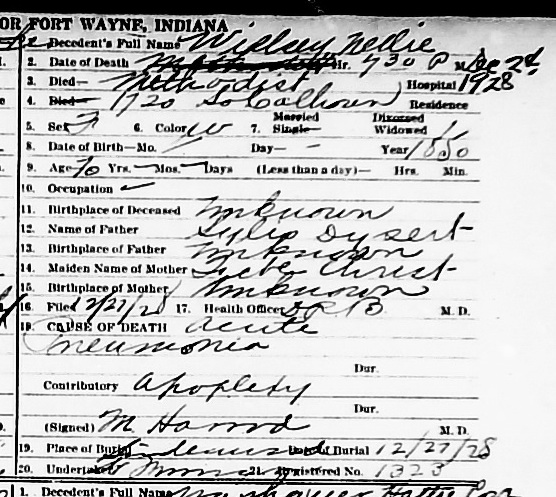 OR FORT WAYNE, INDIANA
Decedent's Full Name Widsey Nellie
2. Date of Death Hr. 730 P M. Dec 2d
3. Died— Methodist Hospital 1928
4. Died— 1720 So Calhoun Residence
5. Sex F 6. Color W 7. Married Single Divorced Widowed
8. Date of Birth—Mo. Day— Year 1850
9. Age Yrs. Mos. Days (Less than a day)— Hrs. Min.
10. Occupation
11. Birthplace of Deceased Unknown
12. Name of Father Dysert
13. Birthplace of Father Unknown
14. Maiden Name of Mother Christ
15. Birthplace of Mother Unknown
16. Filed 12/27/28 17. Health Officer M. D.
18. CAUSE OF DEATH Acute
Pneumonia
Dur.
Contributory Apoplexy
Dur.
(Signed) M Harrod M. D.
19. Place of Burial Date of Burial 12/27/28
20. Undertaker 21. Registered No. 1323
1. Decedent's Full Name